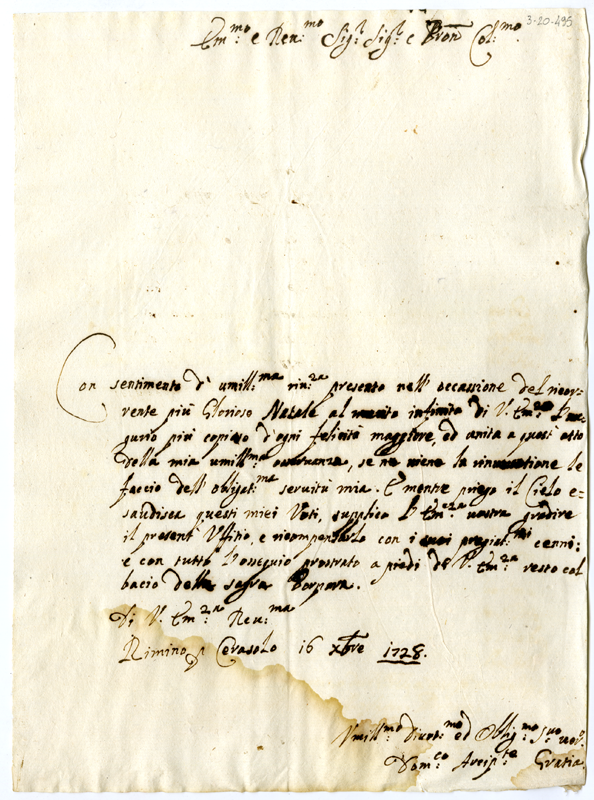 3-20-495
Em.mo e Reu.mo Sig.r Sig.r e Pron Col.mo
Con sentimento d'umill.ma riu.za presento nell'occassione del ricor-
rente più Glorioso Natale al merito infinito di V. Em.za l'au-
gurio più copioso d'ogni felicità maggiore, ed unita a quest'atto
della mia umill.ma osseruanza, se ne viene la rinouatione le
faccio dell'obligat.ma seruitù mia. E mentre priego il Cielo e-
saudisca questi miei Voti, supplico l'Em.za uostra gradire
il present'Uffitio, e ricompensarlo con i suoi pregiat.mi cenni;
e con tutto l'ossequio prostrato a piedi di V. Em.za resto col
bacio della sagra Porpora.
Di V. Em.za Reu.ma
Rimino p Cerasolo 16 xbre 1728.
Vmill.mo Diuot.mo ed Oblig.mo S.uo
Dom.co Arcip.te Gratia